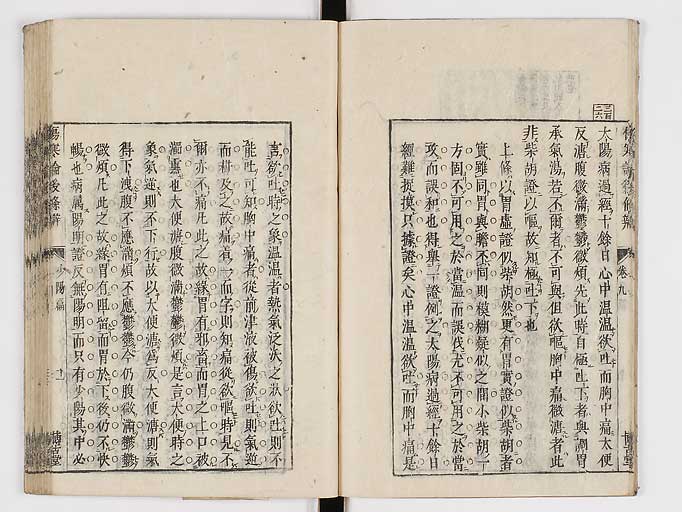 三百
二六
傷寒論後條辨 卷九
博古堂
太陽病過經十餘日心中温温欲吐而胸中痛大便
反溏腹微滿鬱鬱微煩先此時自極吐下者與調胃
承氣湯若不爾者不可與但欲嘔胸中痛微溏者此
非柴胡證以嘔故知極吐下也
上條以胃虛證似柴胡然更有胃實證似柴胡者
實雖同胃與膽不同則模糊疑似之間小柴胡一
方固不可用之於當温而誤伐尤不可用之於當
攻而誤和也得舉一證例之太陽病過經十餘日
經難捉摸只據證矣心中温温欲吐而胸中痛是
言欲吐時之象温温者熱氣泛沃之狀欲吐則不
能吐可知胸中痛者從前津液被傷欲吐則氣逆
而耕及之故痛着一而字則知痛從欲嘔時見不
爾亦不痛凡此之故緣胃有邪畜而胃之上口被
濁熏也大便溏腹微滿鬱鬱微煩是言大便時之
象氣逆則不下行故以大便溏爲反大便溏則氣
得下洩腹不應滿煩不應鬱鬱今仍腹微滿鬱鬱
微煩凡此之故緣胃有阻留而胃於下後仍不快
暢也病屬陽明證反無陽明而只有少陽其中必
傷寒論後條辨 少陽篇
博古堂